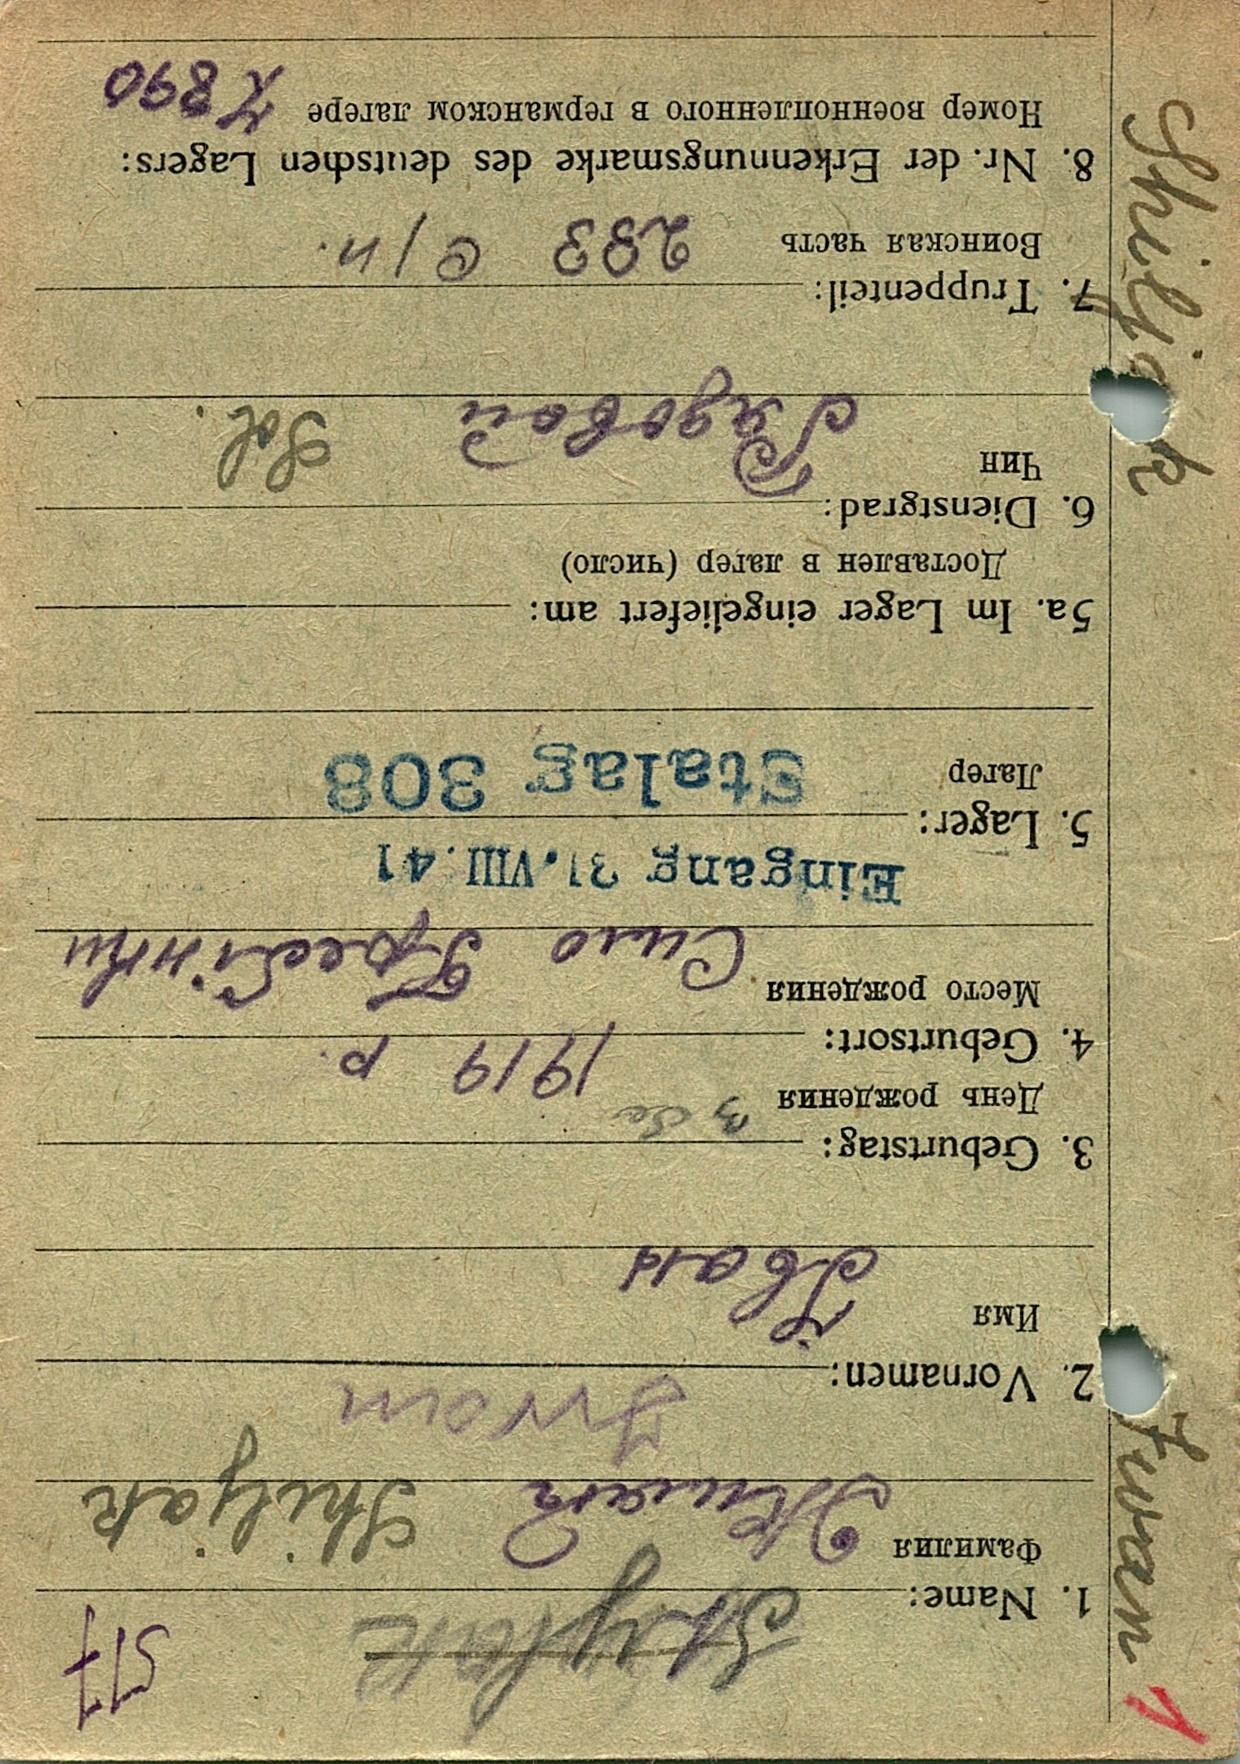 517
1. Name:
Фамилия Жиляк Shiljak
Iwan
2. Vornamen:
Имя Іван
3. Geburtstag:
День рождения 1919 р.
4. Geburtsort:
Место рождения Сило Гребінки
Eingang 31.VIII.41
5. Lager:
Лагер Stalag 308
5a. Im Lager eingeliefert am:
Доставлен в лагер (число)
6. Dienstgrad:
Чин Рядовой Sol.
7. Truppenteil:
Воинская часть 283 с/п.
8. Nr. der Erkennungsmarke des deutschen Lagers:
Номер военнопленного в германском лагере 7890
1 Iwan Shiljak